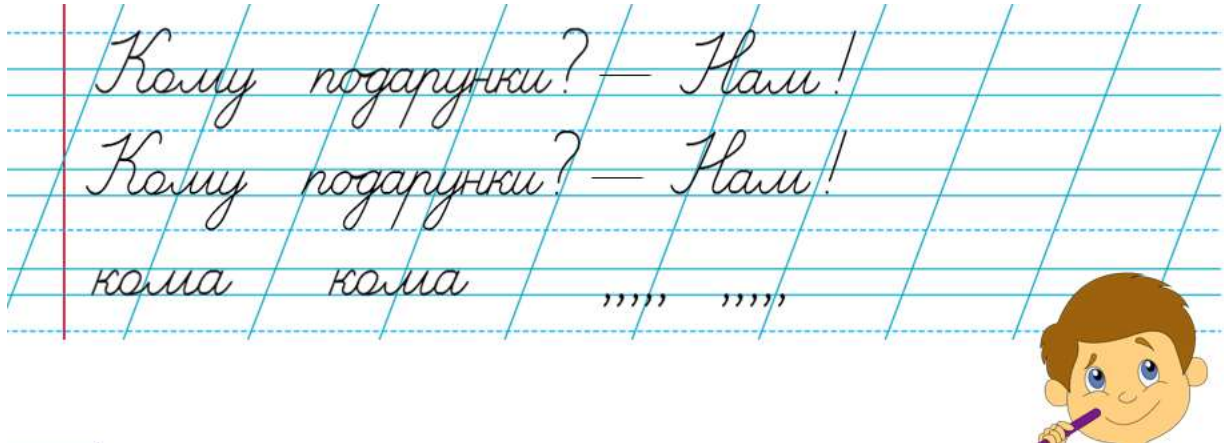 Кому подарунки? — Нам!
Кому подарунки? — Нам!
кома кома ,,,,, ,,,,,